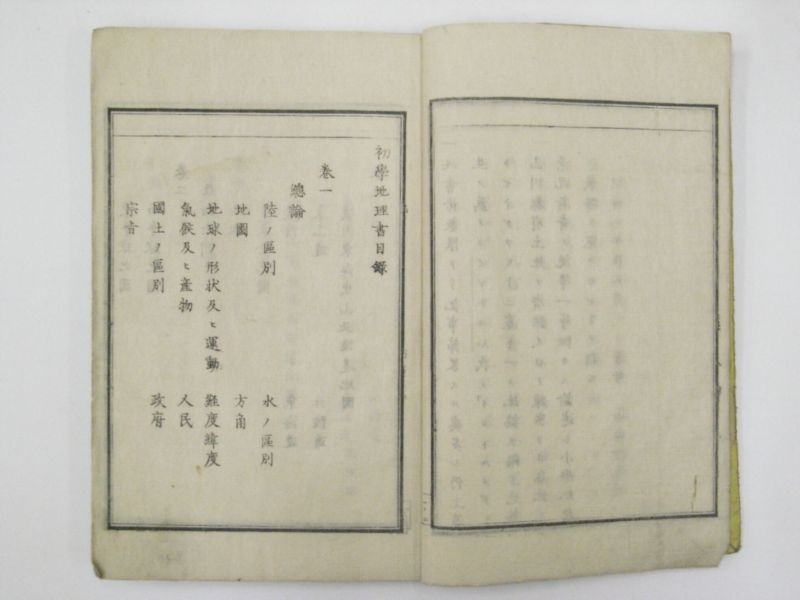 初學地理書目録
卷一
總論
陸ノ區別 水ノ區別
地圖 方角
地球ノ形状及ヒ運動 經度緯度
氣候及ヒ產物 人民
國土ノ區別 政府
宗旨